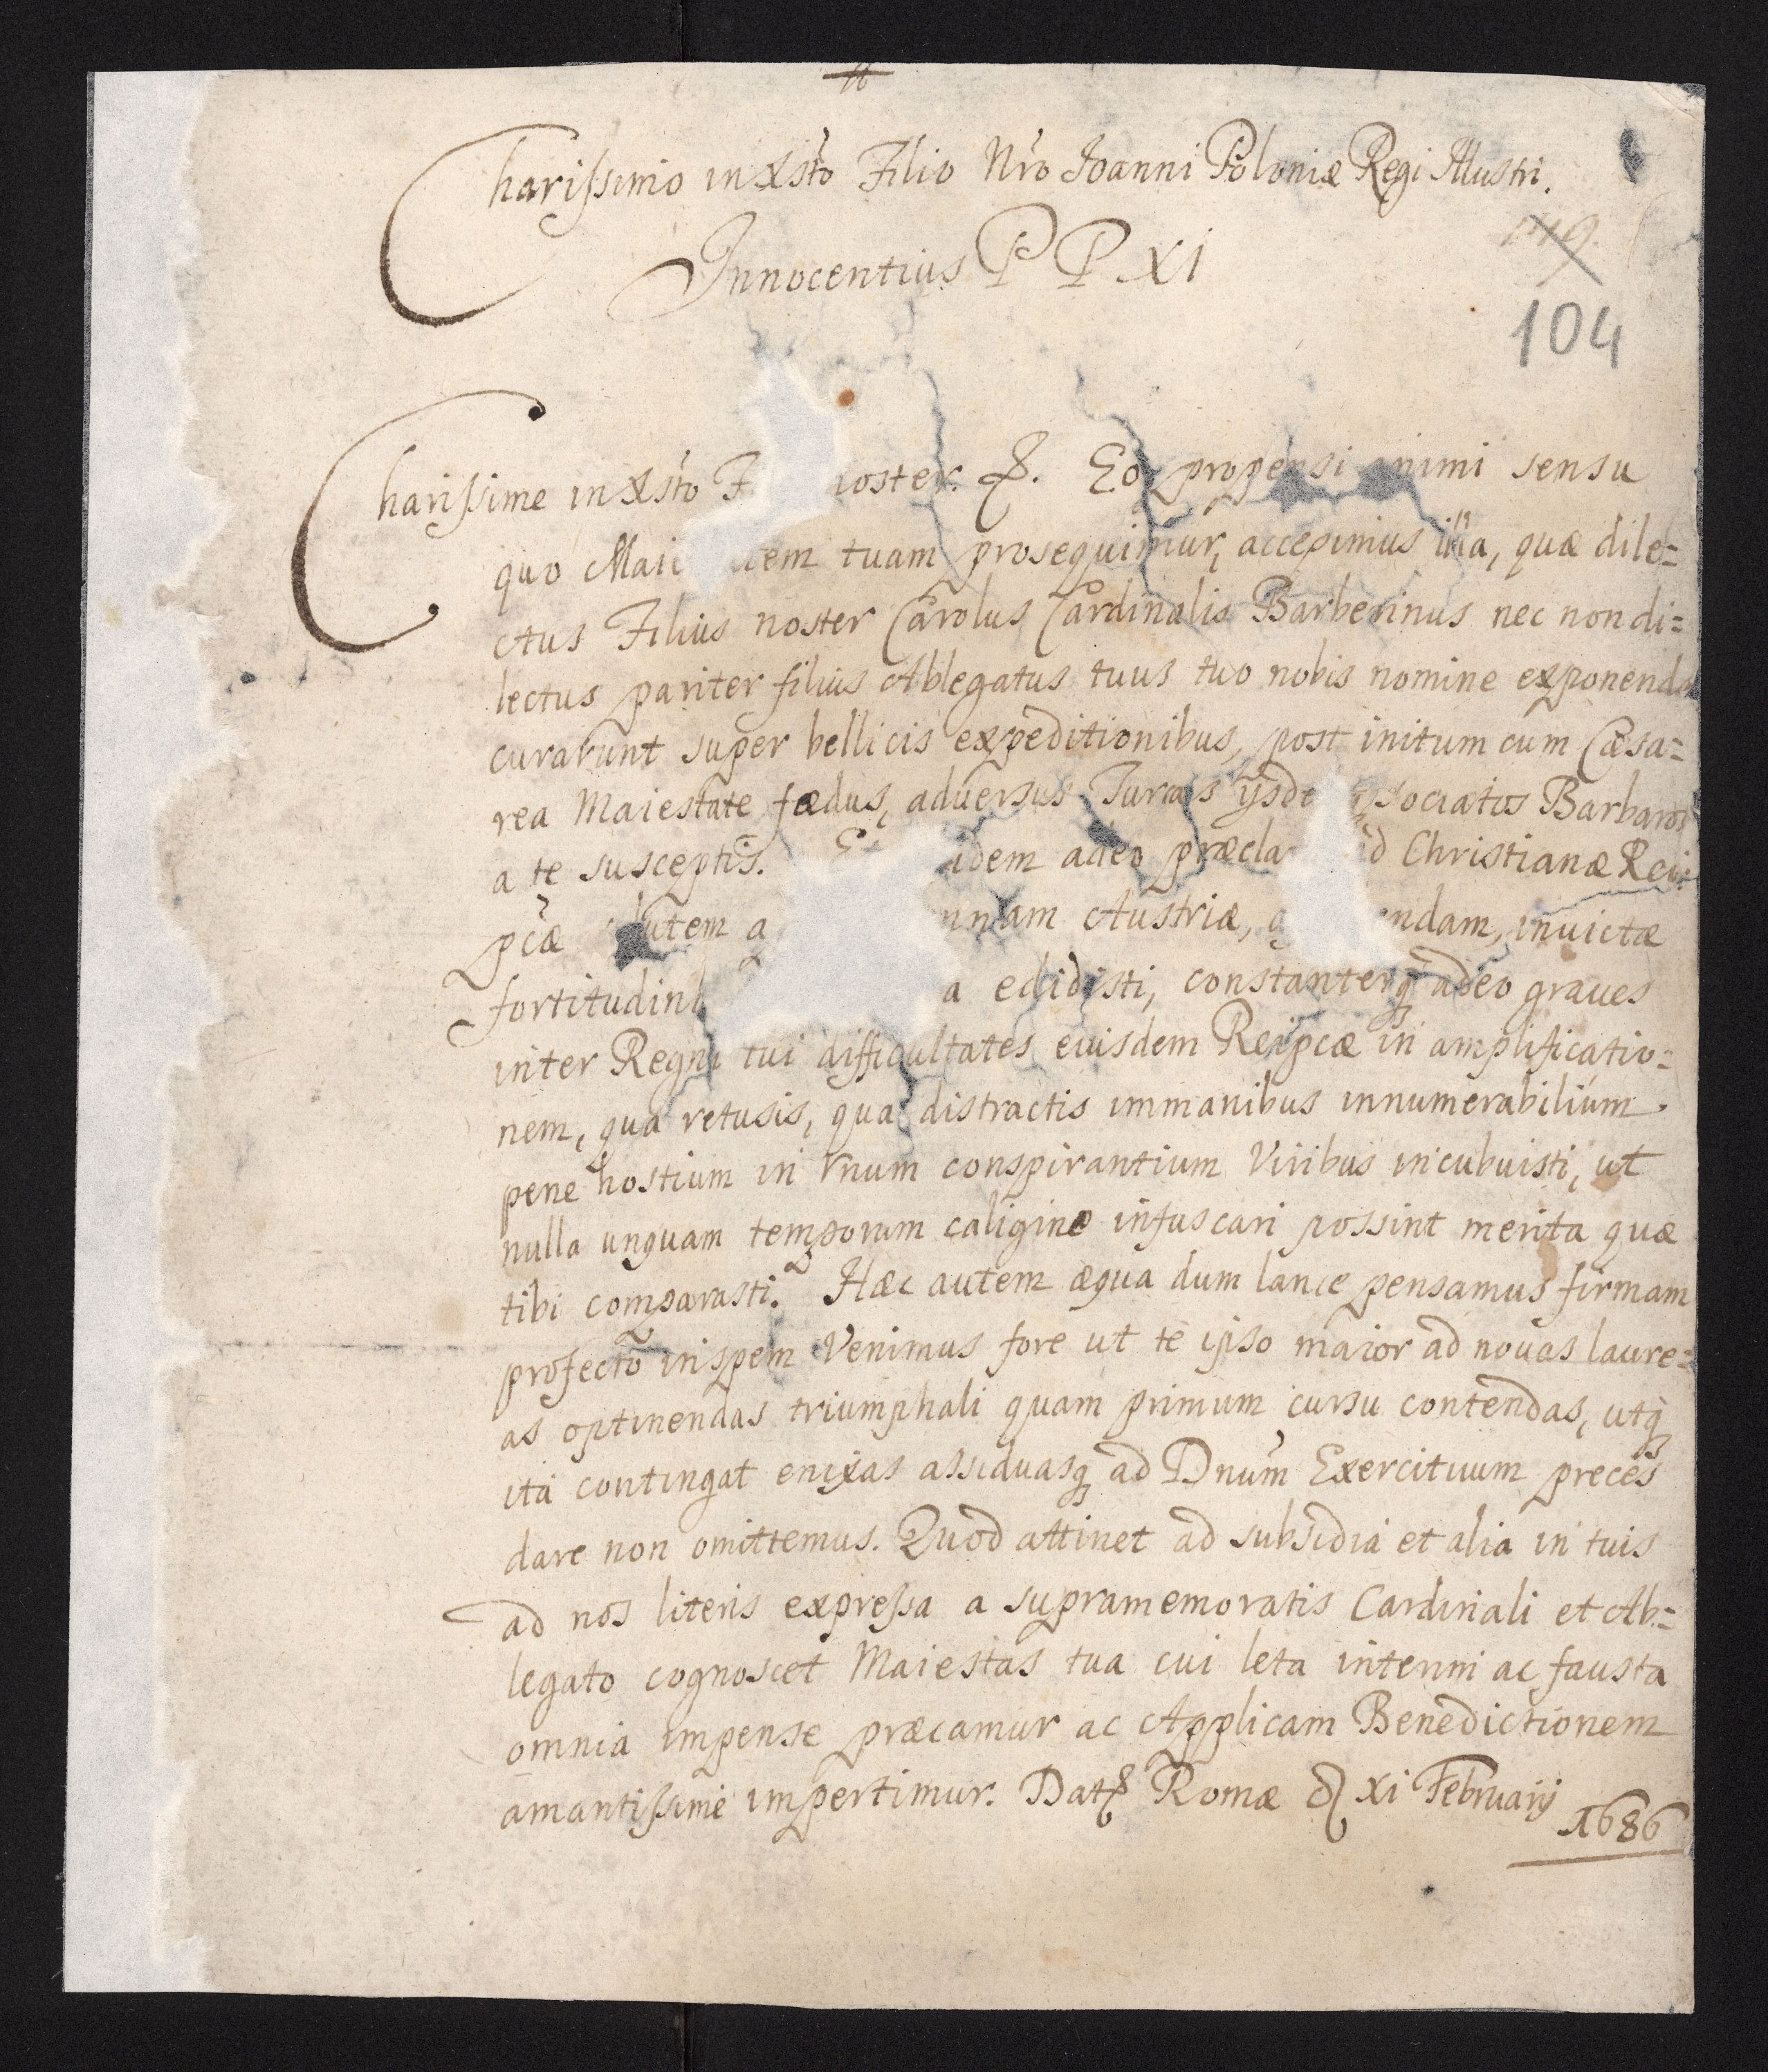 Charissimo in Xsto Filio Nro Joanni Poloniæ Regi Illustri.
Innocentius PP XI
104
Charissime in Xsto F noster. &. Eo propensi animi sensu
quo Mai tem tuam prosequimur, accepimus illa, quæ dile=
ctus Filius noster Carolus Cardinalis Barberinus nec non di=
lectus pariter filius Ablegatus tuus tuo nobis nomine exponenda
curarunt super bellicis expeditionibus, post initum cum Cæsa=
rea Maiestate fœdus, adversus Turcas ijsde sociatos Barbaros
a te susceptis. idem adeo præcla d Christianæ Rei
pcæ autem a nnam Austriæ, q endam, invictæ
fortitudini a edidisti, constanterq adeo graves
inter Regni tui difficultates eiusdem Reipcæ in amplificatio=
nem, qua retusis, qua distractis immanibus innumerabilium
pene hostium in Vnum conspirantium Viribus incubuisti, ut
nulla unquam temporum caligine infuscari possint merita quæ
tibi comparasti. Hæc autem æqua dum lance pensamus firmam
profecto in spem Venimus fore ut te ipso maior ad novas laure=
as optinendas triumphali quam primum cursu contendas, utq
ita contingat enixas assiduasq ad Dnum Exercituum preces
dare non omittemus. Quod attinet ad subsidia et alia in tuis
ad nos literis expressa a supramemoratis Cardinali et Ab=
legato cognoscet Maiestas tua cui leta interim ac fausta
omnia impense præcamur ac Applicam Benedictionem
amantissime impertimur. Dat Romæ d XI Februarij
1686